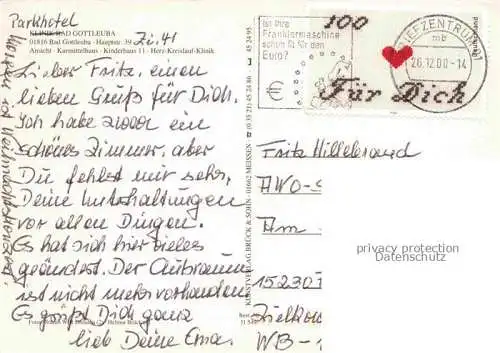 Parkhotel
KLINIK BAD GOTTLEUBA
01816 Bad Gottleuba · Hauptstr. 39
Zi. 41
Ansicht - Karsmittelhaus - Kinderhaus 11 - Herz-Kreislauf-Klinik
Lieber Fritz, einen
lieben Gruß für Dich.
Ich habe zwar ein
schönes Zimmer, aber
Du fehlst mir sehr,
Deine Unterhaltungen
vor allen Dingen.
Es hat sich hier vieles
geändert. Der Aufbauraum
ist nicht mehr vorhanden
Es grüßt Dich ganz
lieb Deine Erna.
KUNSTVERLAG BRÜCK & SOHN · 01662 MEISSEN · (0 35 21) 45 24 86 · 45 24 95
Ist Ihre
Frankiermaschine
schon fit für den
Euro?
€
100
Für Dich
Deutschland
BRIEFZENTRUM
mb
28.12.00 - 14
Fritz Hillebrand
AWO-S
Am
privacy protection
Datenschutz
15230 F
WB-1